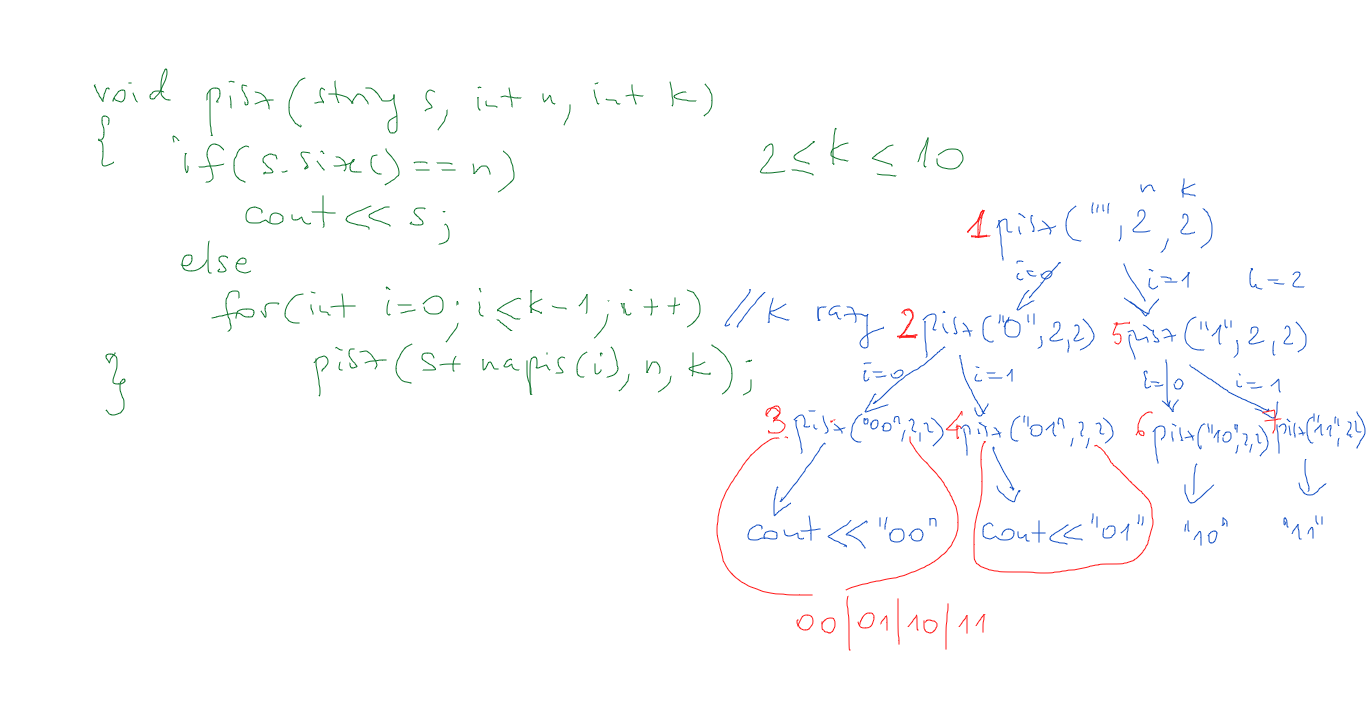 void pisz(string s, int n, int k)
{ if(s.size()==n)
cout<<s;
else
for(int i=0;i≤k-1;i++) //k razy
pisz(s+napis(i),n,k);
}
2≤k≤10
n k
1 pisz("",2,2)
i=0 i=1 k=2
2 pisz("0",2,2) 5 pisz("1",2,2)
i=0 i=1 i=0 i=1
3. pisz("00",2,2) 4 pisz("01",2,2) 6 pisz("10",2,2) 7 pisz("11",2,2)
cout<<"00" cout<<"01" "10" "11"
00|01|10|11